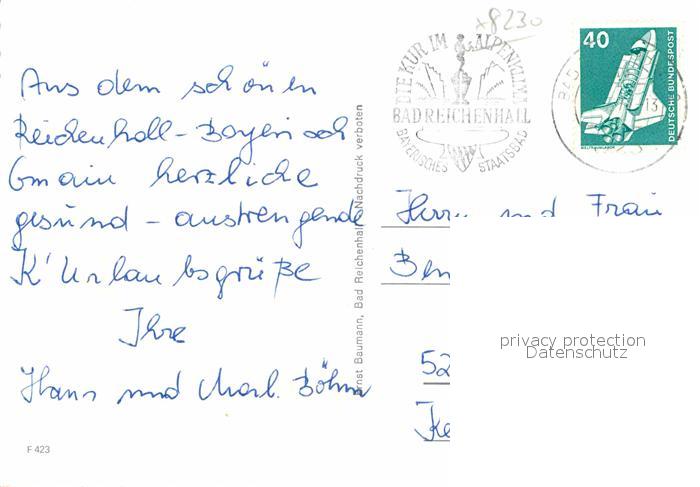 x8230
DIE KUR IM ALPENKLIMA
BAD REICHENHALL
BAYERISCHES STAATSBAD
40
DEUTSCHE BUNDESPOST
WELTRAUMLABOR
BAD
13
Aus dem schönen
Reichenhall - Bayerisch
Gmain herzliche
gesund - anstrengende
K'Urlaubsgrüße
Ihre
Hans und Charl. Böhm
Ernst Baumann, Bad Reichenhall Nachdruck verboten
Herrn und Frau
Ben
52
Ke
privacy protection
Datenschutz
F 423